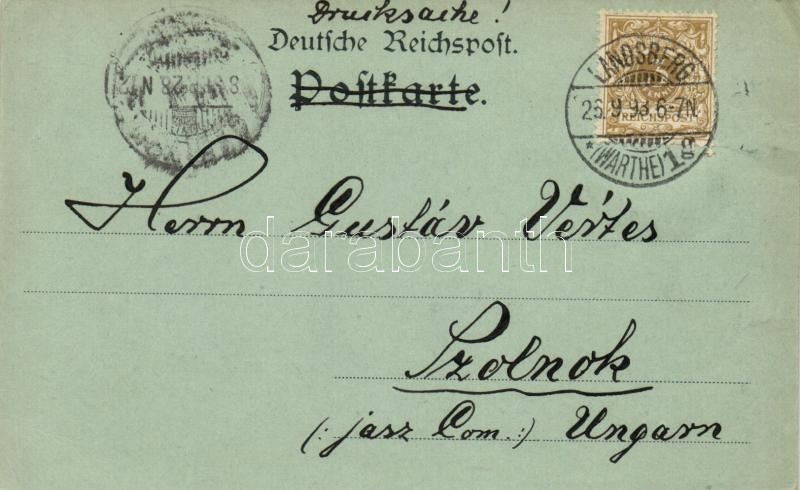 Drucksache!
Deutsche Reichspost.
Postkarte.
LANDSBERG
26.9.98.6-7N.
* (WARTHE) 1g
REICHSPOST
Herrn Gustáv Vértes
darabanth
Szolnok
(: jasz Com. :) Ungarn